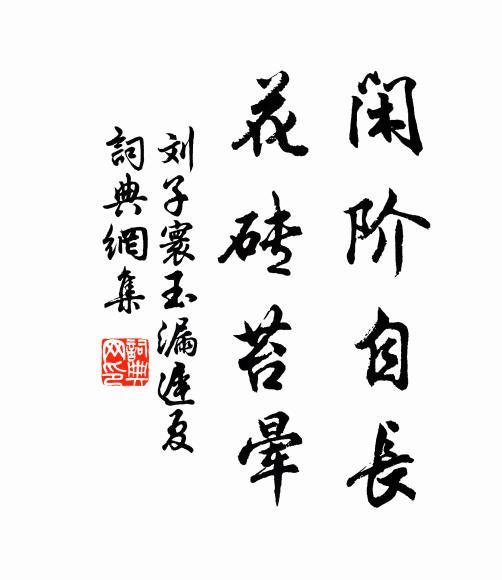 闲阶自長
花砖苔暈
刘子寰玉漏遲夏
詞典網集
詞典
网印